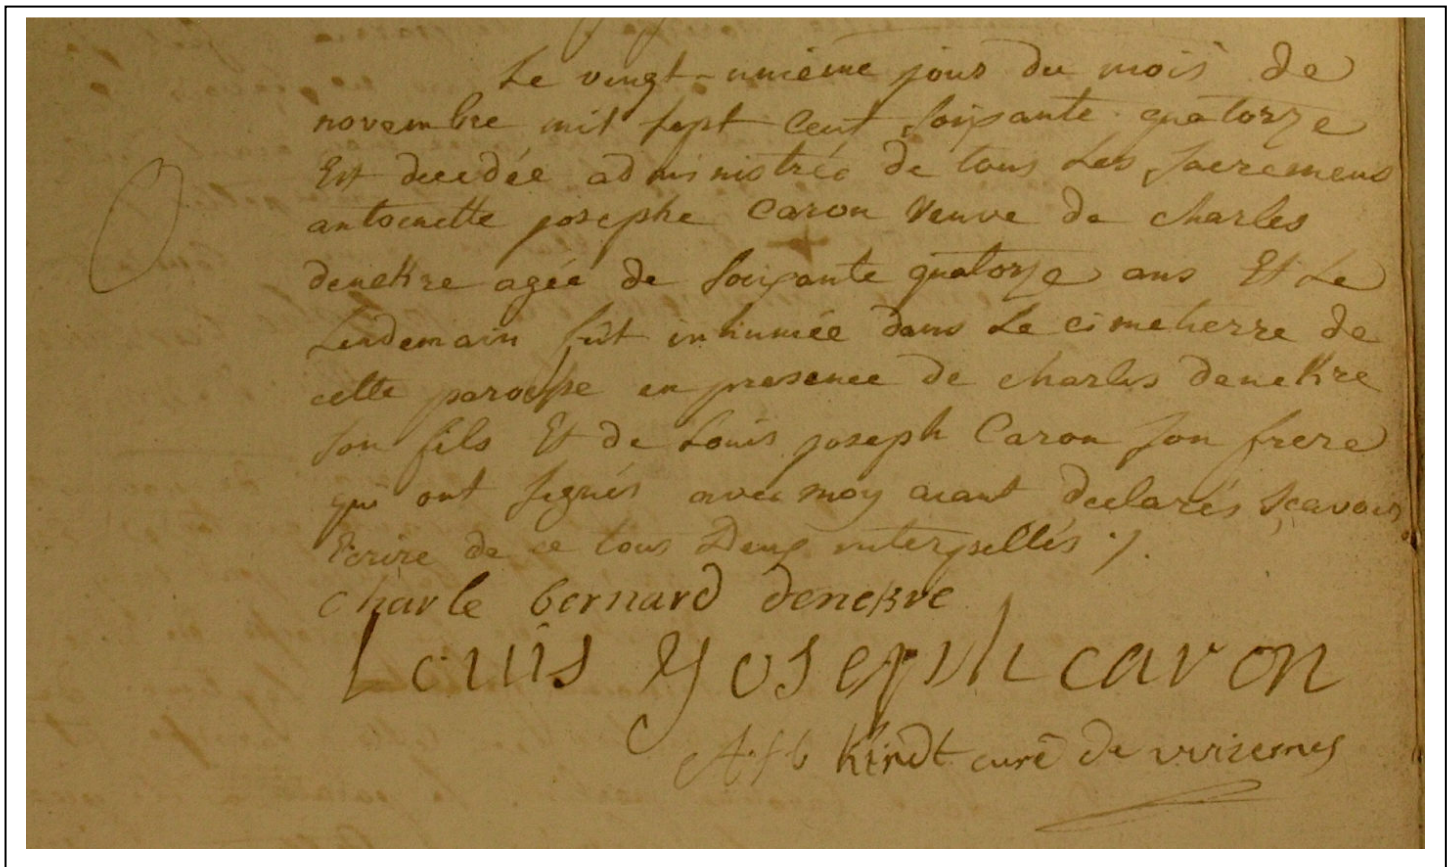 Le vingt-unième jour du mois de
novembre mil sept cent soixante quatorze
Est decedée administrée de tous Les sacremens
antoinette josephe Caron Veuve de charles
denekre agée de soixante quatorze ans Et Le
Lendemain fût inhumée dans Le cimetierre de
cette paroisse en presence de charles denekre
son fils Et de Louis joseph Caron son frere
qui ont signés avec moy aiant declarés sçavoir
Ecrire de ce tous Deux interpellés ./.
charle bernard denekre
Louis yoseph caron
Kindt curé de